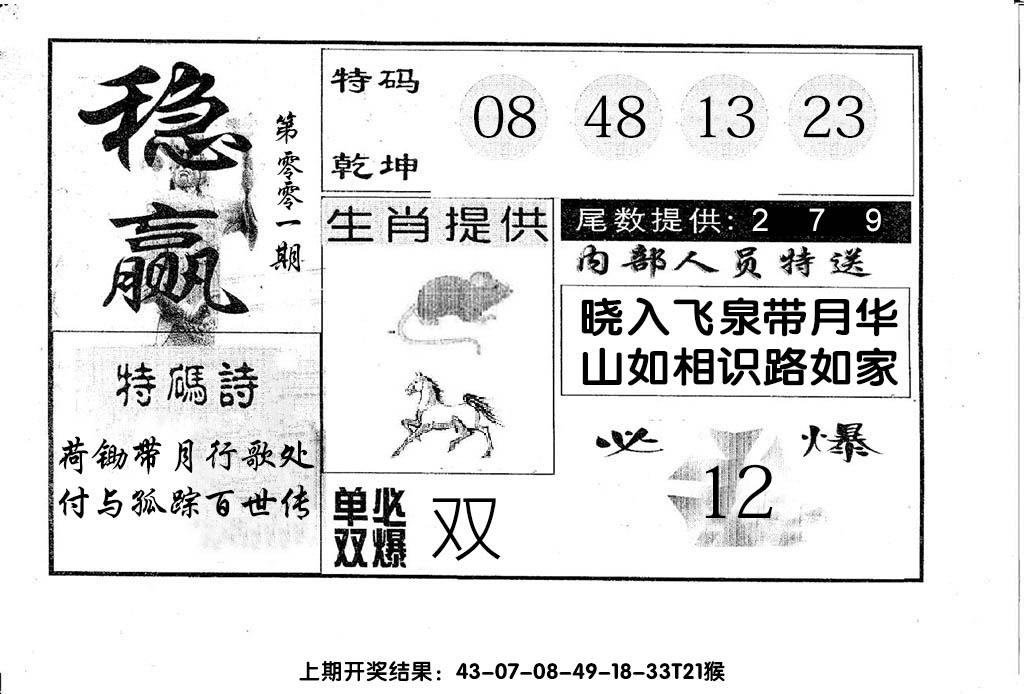 稳赢
第零零一期
特码
乾坤
08 48 13 23
生肖提供
尾数提供: 2 7 9
内部人员特送
晓入飞泉带月华
山如相识路如家
特碼詩
荷锄带月行歌处
付与孤踪百世传
单双
必爆
双
必爆
12
上期开奖结果：43-07-08-49-18-33T21猴